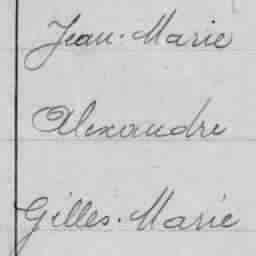 Jean-Marie
Alexandre
Gilles-Marie